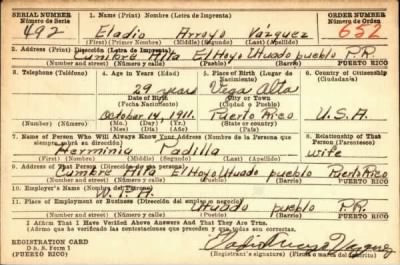 SERIAL NUMBER 1. Name (Print) Nombre (Letra de Imprenta) ORDER NUMBER
Número de Serie Número de Orden
492 Eladio Arroyo Vázquez 652
(First) (Primer Nombre) (Middle) (Segundo) (Last) (Apellido)
2. Address (Print) Dirección (Letra de Imprenta)
Cumbre Alta El Hoyo Utuado pueblo P.R.
(Number and street) (Número y calle) (Pueblo) (Barrio) PUERTO RICO
3. Telephone (Teléfono) 4. Age in Years (Edad) 5. Place of Birth (Lugar de Nacimiento) 6. Country of Citizenship (Ciudadanía)
29 years Vega Alta
Date of Birth (Fecha Nacimiento) Town or City (Ciudad o Pueblo)
October 14, 1911. Puerto Rico U.S.A.
(Number) (Número) (Mo.) (Day) (Yr.) (State or country)
(Mes) (Día) (Año) (Estado o país)
7. Name of Person Who Will Always Know Your Address (Nombre de la Persona que siempre sabrá su dirección) 8. Relationship of That Person (Parentesco)
Herminia Padilla wife
(First) (Primero) (Middle) (Segundo) (Last) (Apellido)
9. Address of That Person (Dirección de esa persona)
Cumbre Alta El Hoyo Utuado pueblo Puerto Rico
(Number and street) (Número y calle) (Pueblo) (Barrio) PUERTO RICO
10. Employer's Name (Nombre del Patrono)
11. Place of Employment or Business (Dirección del empleo o negocio)
Utuado pueblo P.R.
(Number and street) (Número y calle) (Pueblo) (Barrio) PUERTO RICO
I Affirm That I Have Verified Above Answers and That They Are True.
(Afirmo que he verificado las contestaciones que preceden y que todas son correctas.)
REGISTRATION CARD
D. S. S. Form 1
(PUERTO RICO)
Registrant's signature) (Firma o marca del inscrito)